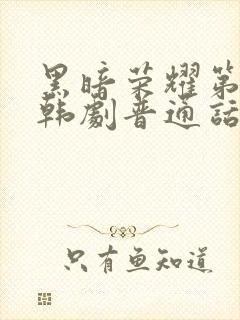 黑暗荣耀第
韩剧普通话
只有鱼知道